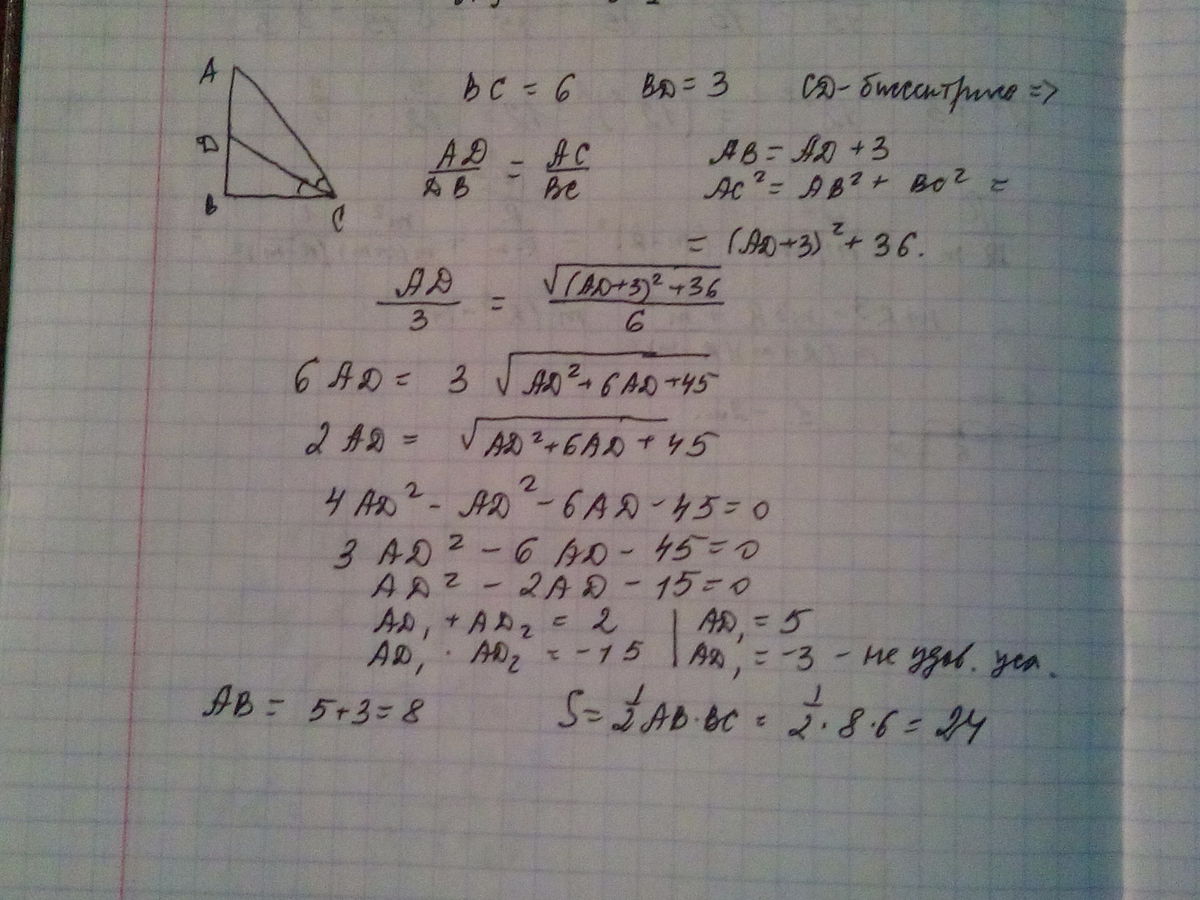 A
D
B
C
BC = 6 BD = 3 CD - биссектриса =>
AD/DB = AC/BC
AB = AD + 3
AC² = AB² + BC² =
= (AD+3)² + 36.
AD/3 = √((AD+3)² + 36)/6
6 AD = 3 √(AD² + 6AD + 45)
2 AD = √(AD² + 6AD + 45)
4 AD² - AD² - 6AD - 45 = 0
3 AD² - 6 AD - 45 = 0
AD² - 2AD - 15 = 0
AD₁ + AD₂ = 2 | AD₁ = 5
AD₁ · AD₂ = -15 | AD₁ = -3 - не удов. усл.
AB = 5+3 = 8 S = 1/2 AB·BC = 1/2 · 8 · 6 = 24